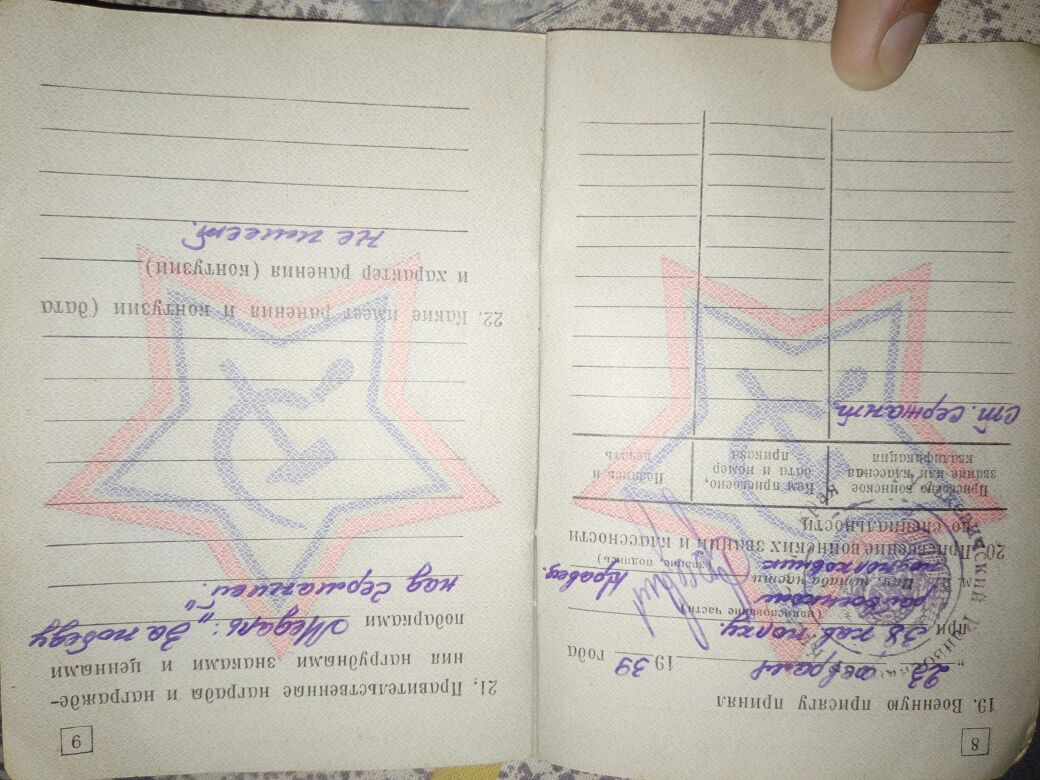 8
19. Военную присягу принял
„23 февраля 1939 года
при 38 кав. полку.
(наименование части)
райвоенком
м. п. Нач. штаба части
подполковник Кравец.
(звание, подпись)
20. Присвоение воинских званий и классности
по специальности
Присвоено воинское
звание или классная
квалификация
Кем присвоено,
дата и номер
приказа
Подпись и
печать
ст. сержант.
9
21. Правительственные награды и награжде-
ния нагрудными знаками и ценными
подарками Медаль: „За победу
над Германией"
22. Какие имеет ранения и контузии (дата
и характер ранения (контузии)
не имеет.